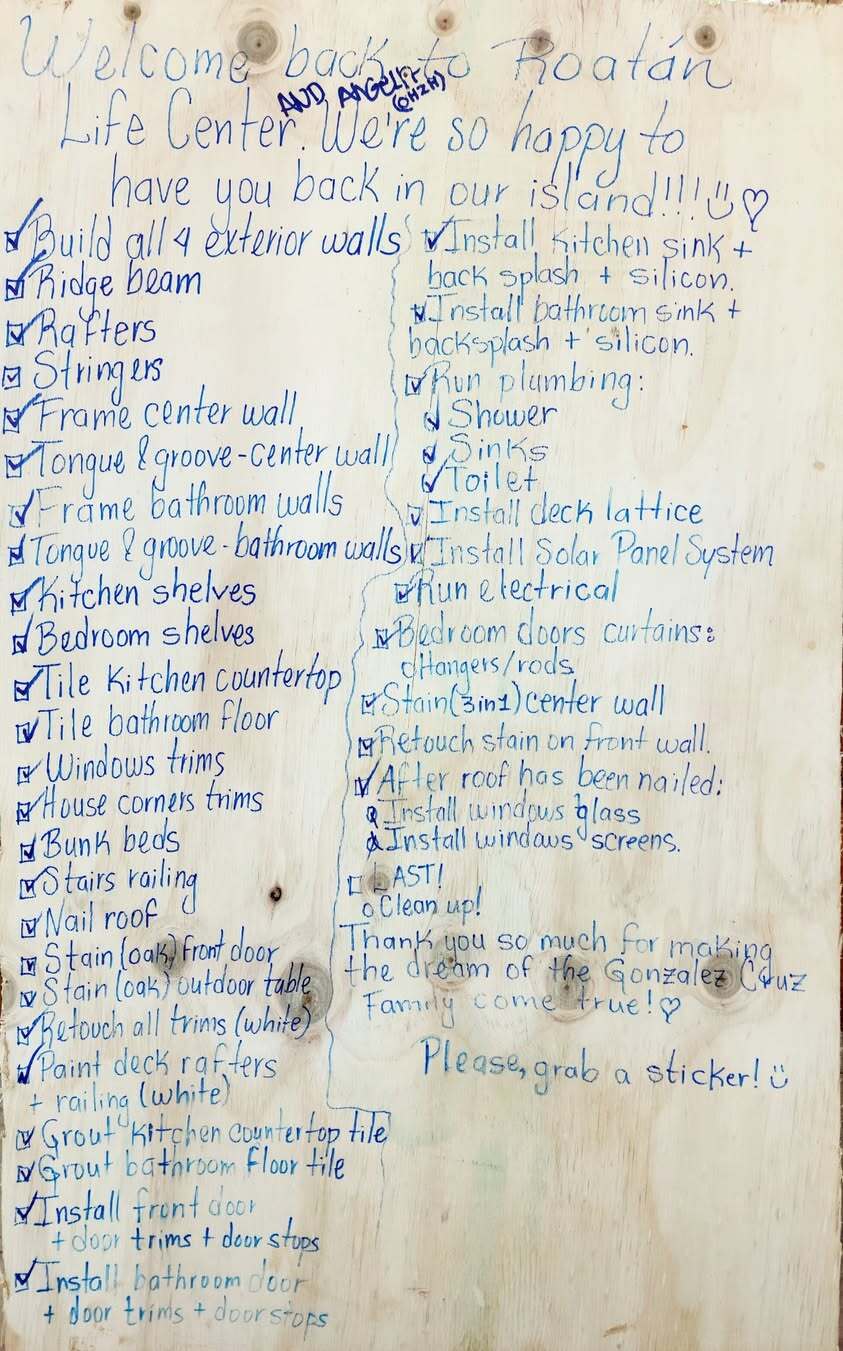 Welcome back to Roatán
AND ANGELIT
(@HZH)
Life Center. We're so happy to
have you back in our island!!!
Build all 4 exterior walls
Ridge beam
Rafters
Stringers
Frame center wall
Tongue & groove-center wall
Frame bathroom walls
Tongue & groove-bathroom walls
Kitchen shelves
Bedroom shelves
Tile Kitchen countertop
Tile bathroom floor
Windows trims
House corners trims
Bunk beds
Stairs railing
Nail roof
Stain (oak) front door
Stain (oak) outdoor table
Retouch all trims (white)
Paint deck rafters
+ railing (white)
Grout Kitchen countertop tile
Grout bathroom floor tile
Install front door
+ door trims + door stops
Install bathroom door
+ door trims + door stops
Install Kitchen sink +
back splash + silicon.
Install bathroom sink +
backsplash + silicon.
Run plumbing:
Shower
Sinks
Toilet
Install deck lattice
Install Solar Panel System
Run electrical
Bedroom doors curtains:
Hangers/rods
Stain (3in1) center wall
Retouch stain on front wall.
After roof has been nailed:
Install windows glass
Install windows screens.
LAST!
Clean up!
Thank you so much for making
the dream of the Gonzalez Cruz
Family come true!
Please, grab a sticker!